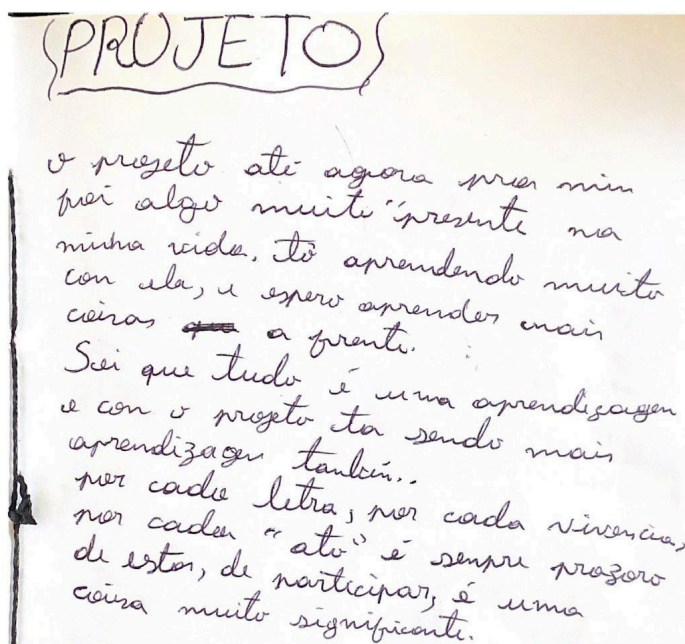 PROJETO
o projeto até agora pra min
foi algo muito "presente na
minha vida. tô aprendendo muito
con ela, e espero aprender mais
coisas a frente.
Sei que tudo é uma aprendizagen
e con o projeto ta sendo mais
aprendizagen tanbén..
por cada letra, por cada vivencia,
por cada "ato" é senpre prazoro
de estar, de participar, é uma
coisa muito significante.